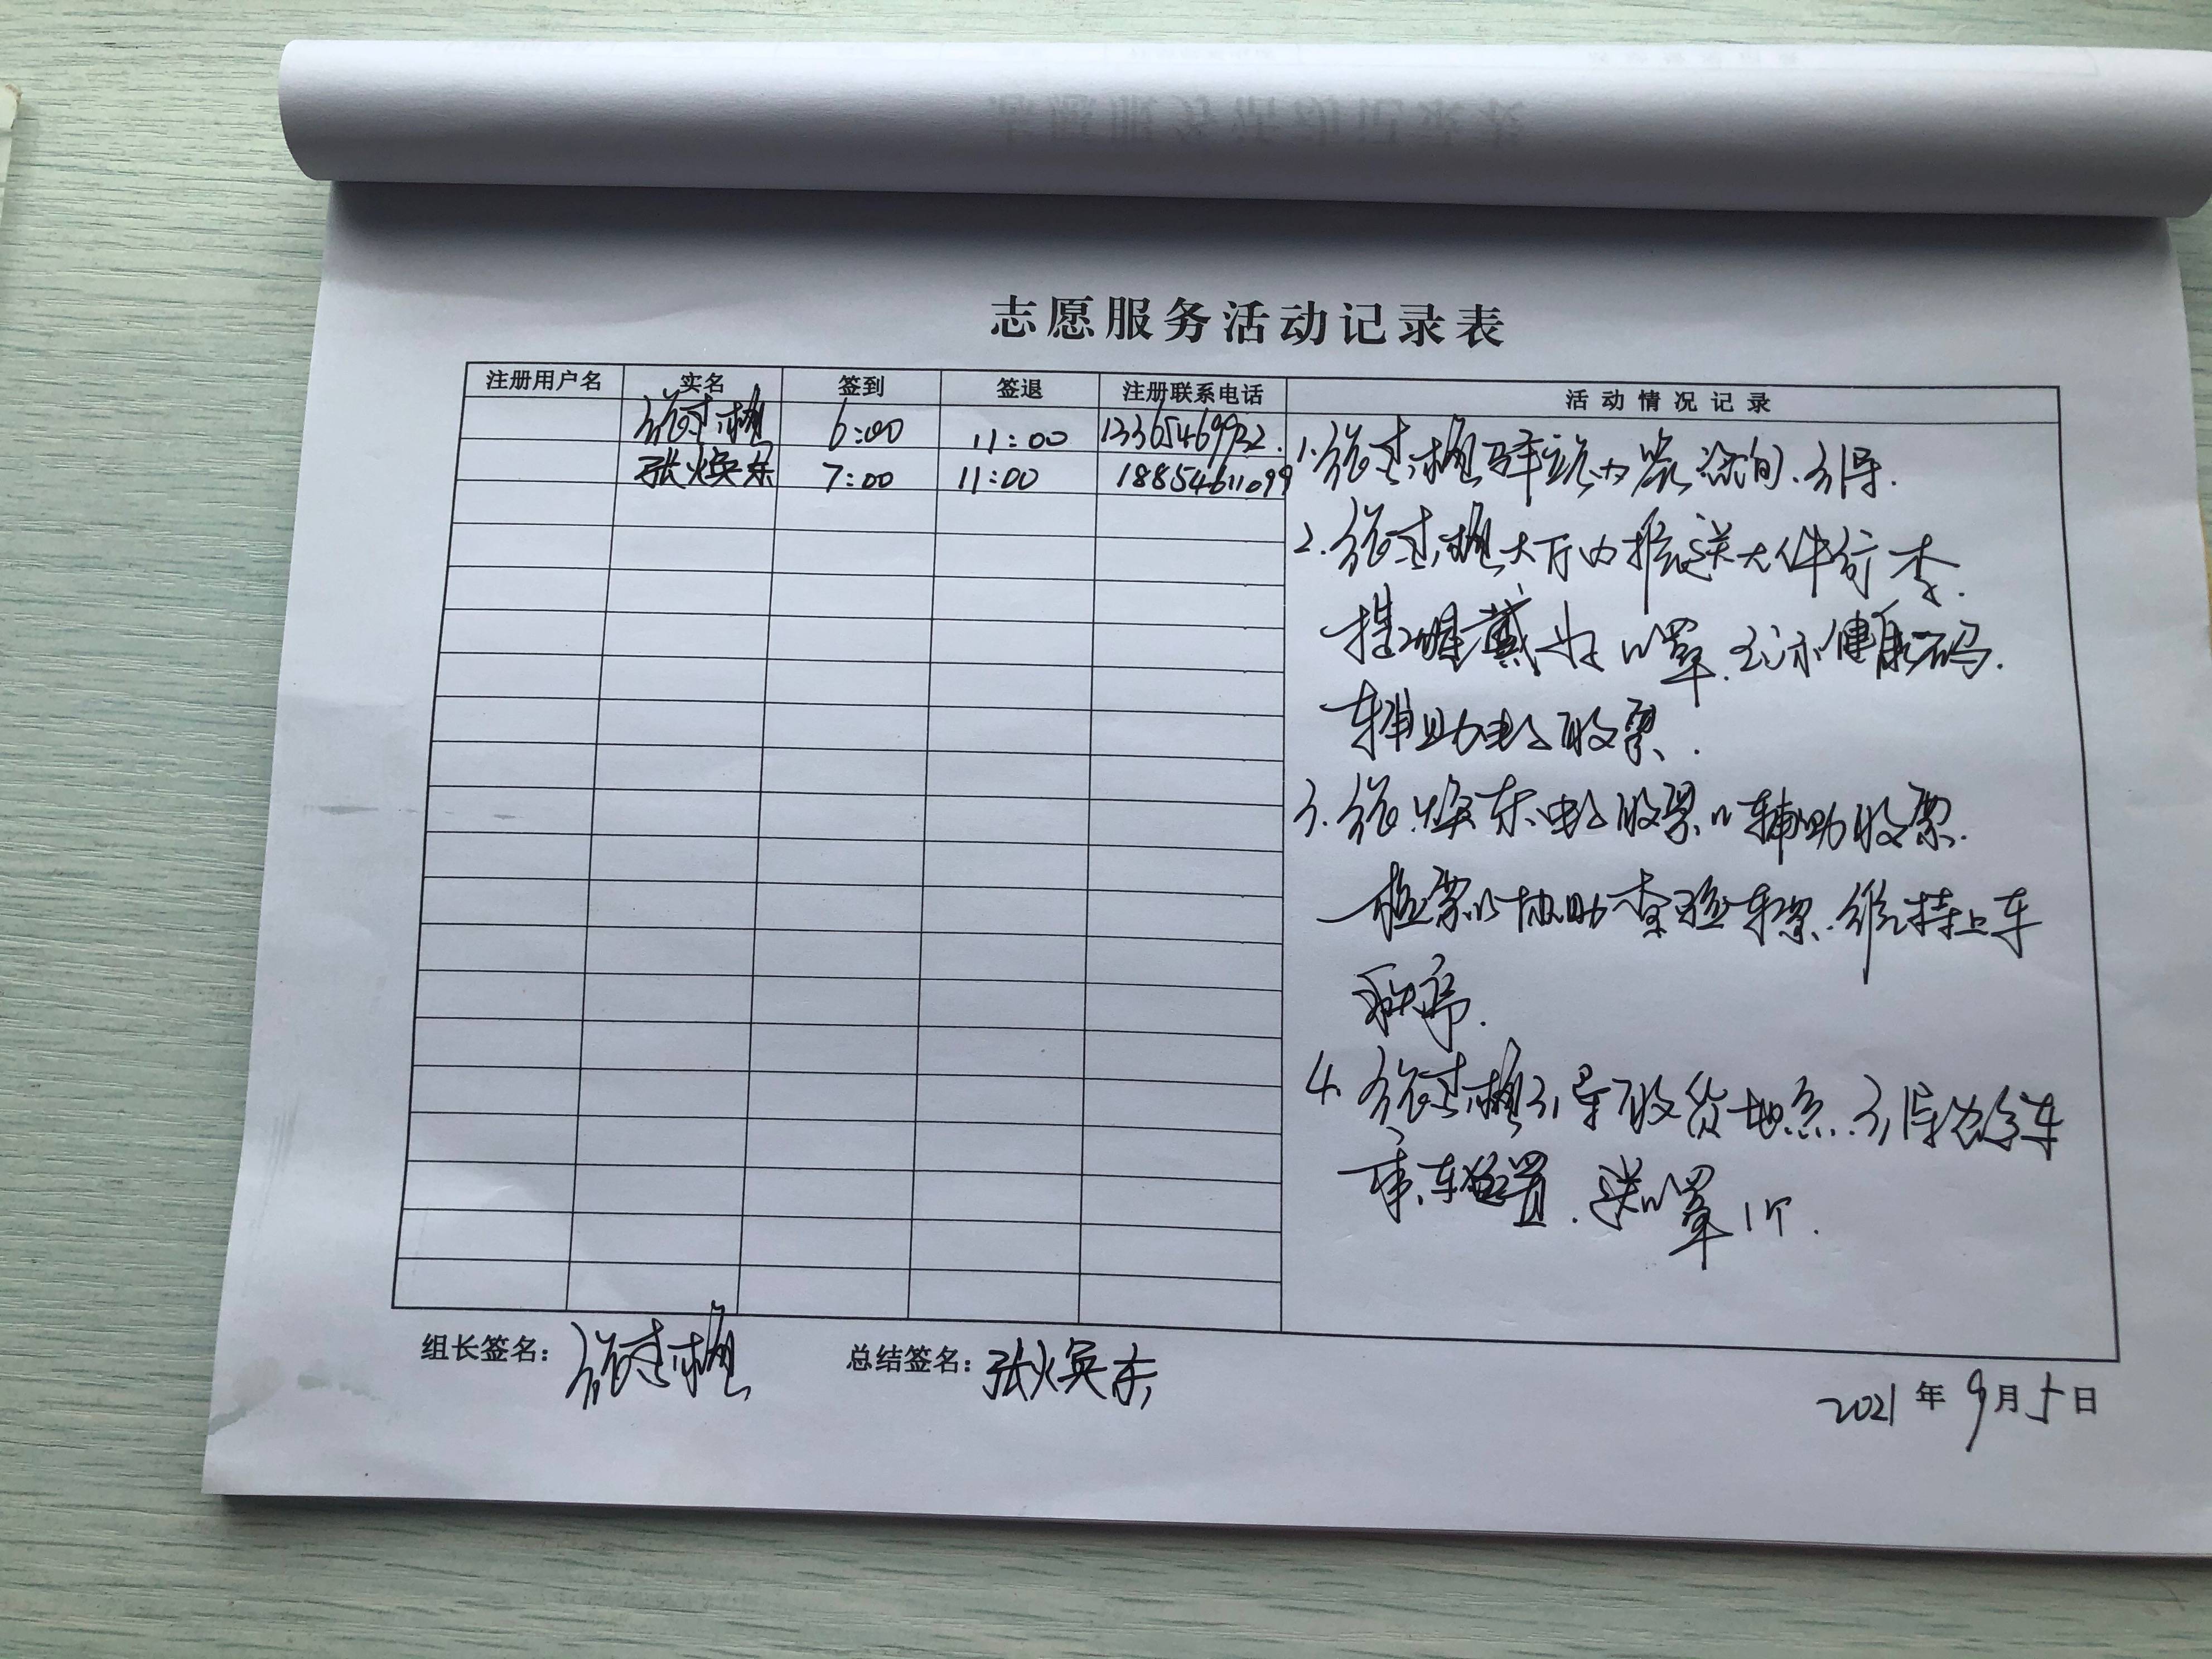 志愿服务活动记录表
注册用户名 实名 签到 签退 注册联系电话 活动情况记录
6:00 11:00 13365469922.
张焕东 7:00 11:00 18854611099
1. 驿站内 咨询、引导.
2. 大厅内推送大件行李.
提醒戴好口罩.出示健康码.
辅助电子取票.
3. 张焕东电子取票口辅助取票.
检票口协助查验车票.维持上车
秩序.
4. 引导取货地点.引导公交车
乘车位置.送口罩1个.
组长签名: 总结签名:张焕东
2021年9月5日